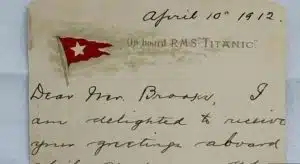 April 10th 1912.
On board R.M.S. "TITANIC"
Dear Mr. Brooks, I
am delighted to receive
your greetings aboard